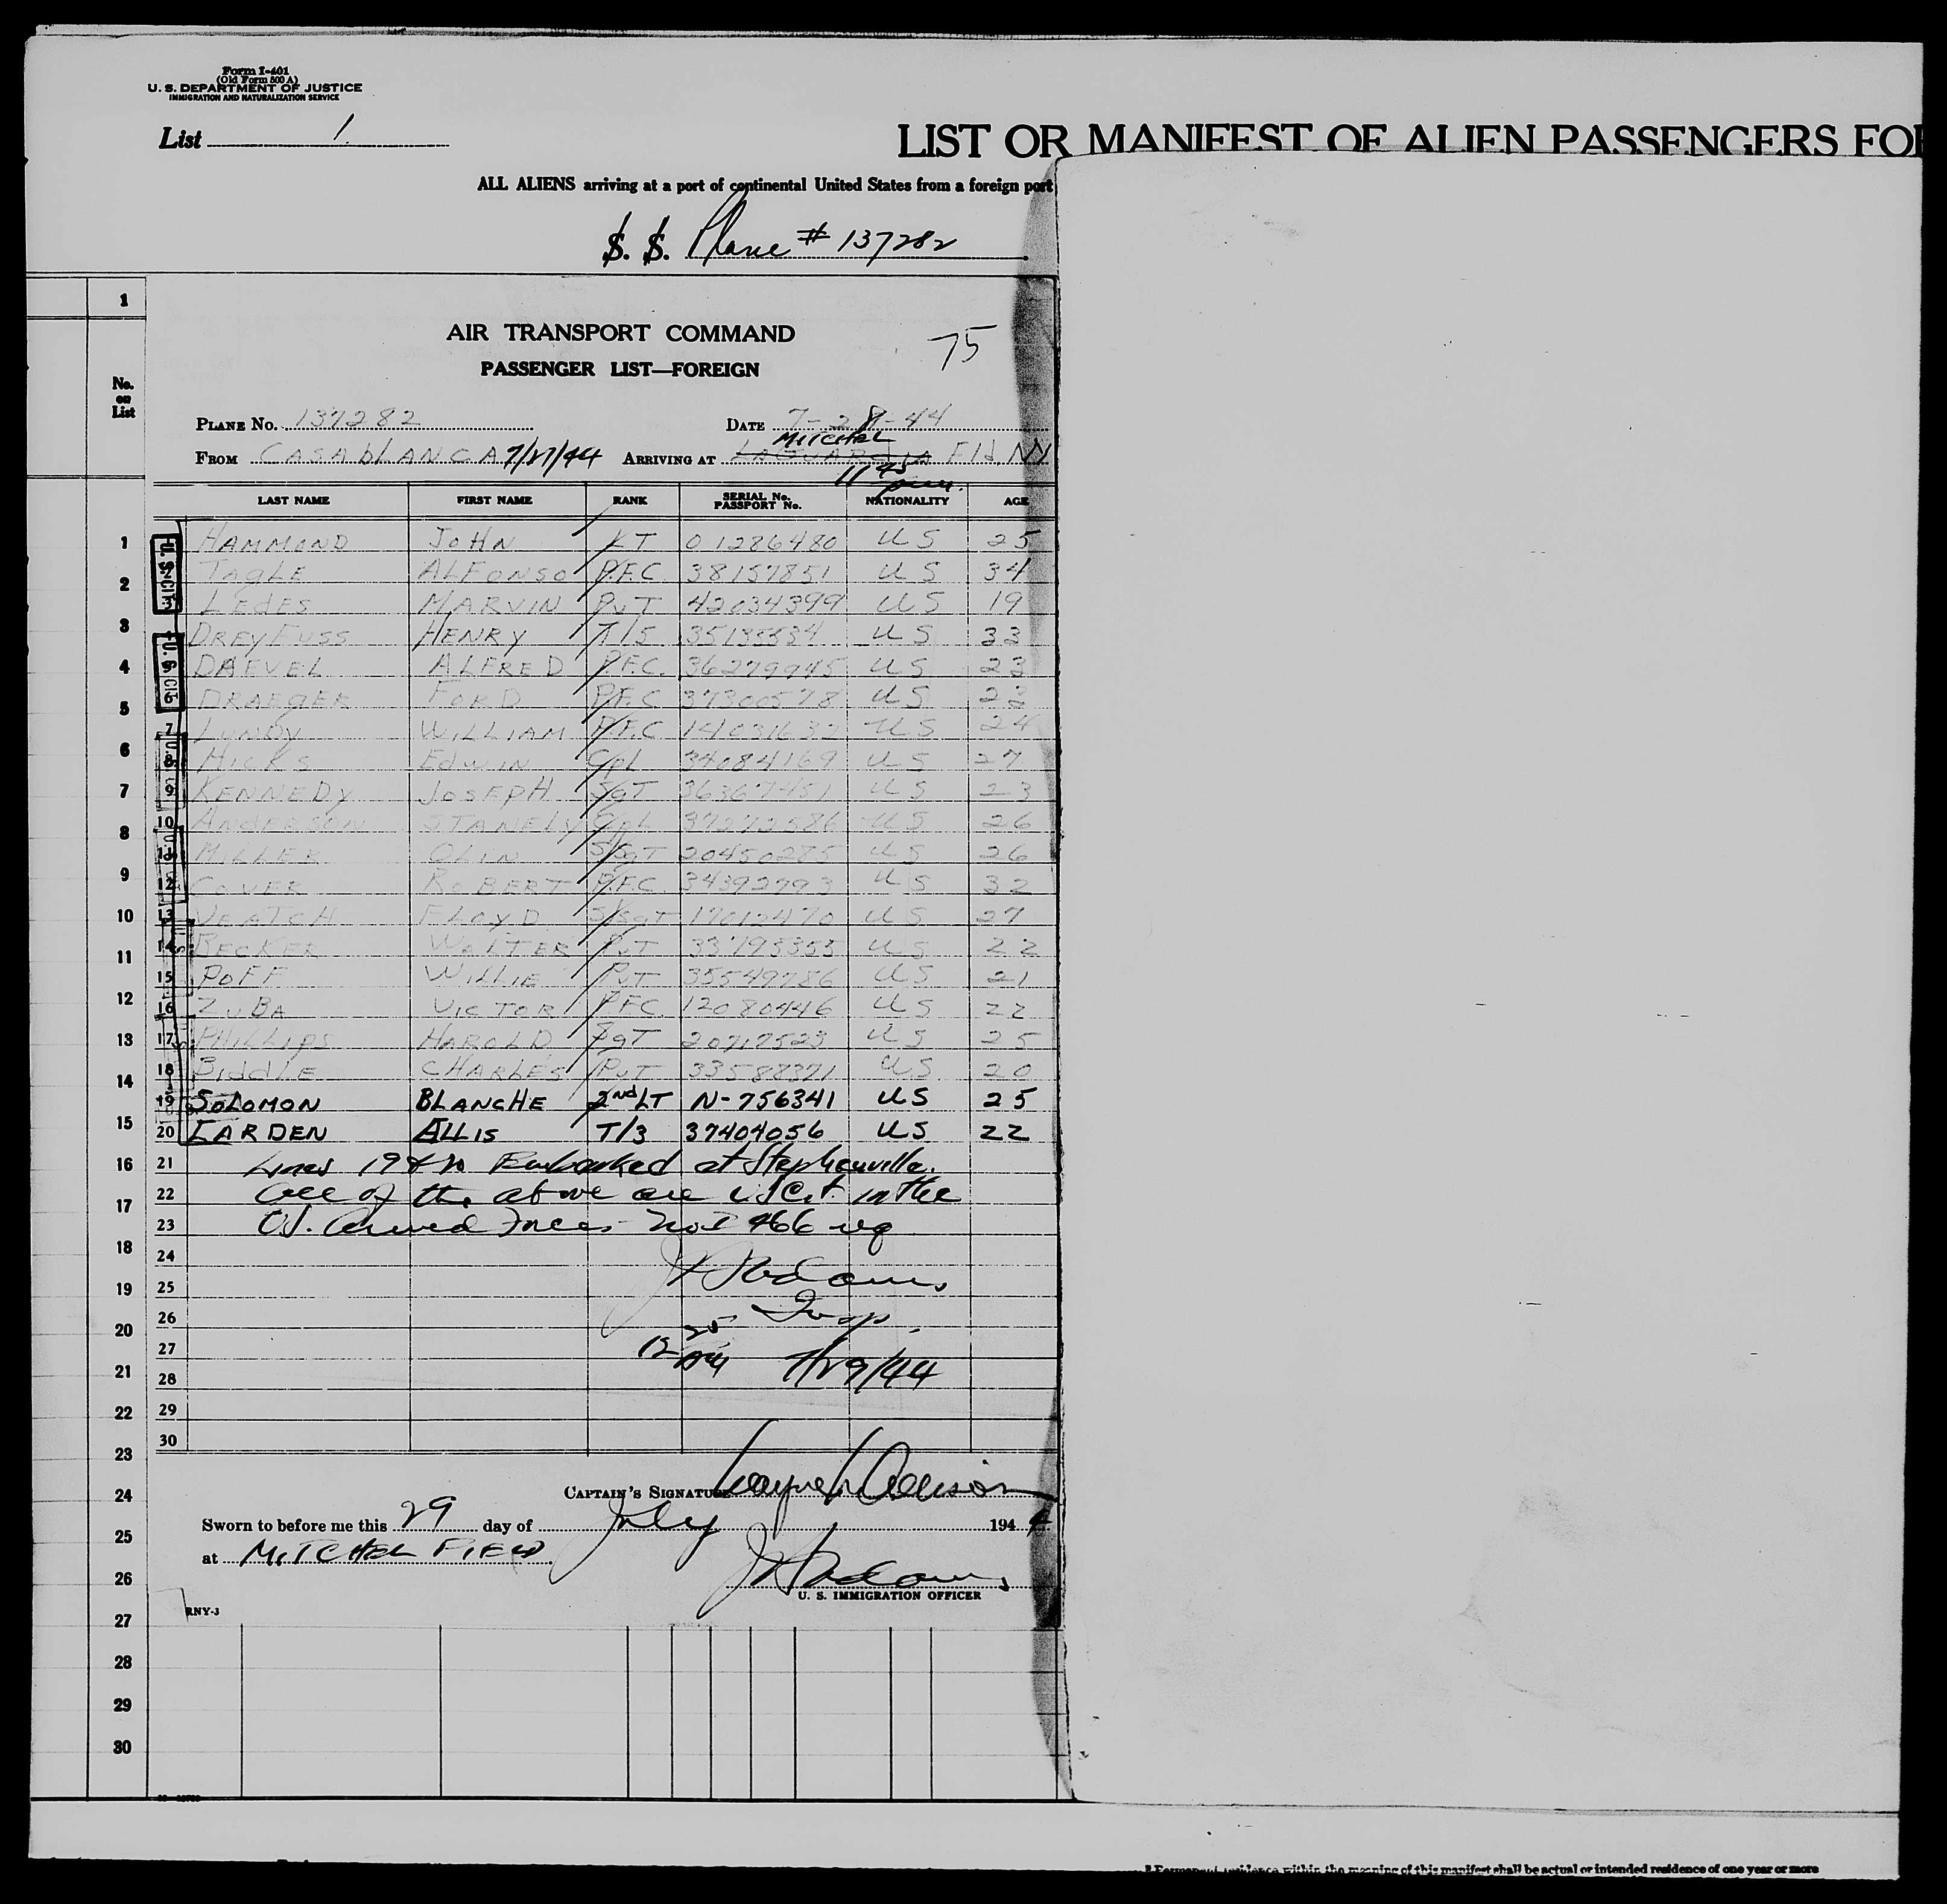 Form I-401
(Old Form 500 A)
U. S. DEPARTMENT OF JUSTICE
IMMIGRATION AND NATURALIZATION SERVICE
List 1
LIST OR MANIFEST OF ALIEN PASSENGERS FOR
ALL ALIENS arriving at a port of continental United States from a foreign port
S. S. Plane # 137282
AIR TRANSPORT COMMAND
75
PASSENGER LIST—FOREIGN
No. on List
PLANE No. 137282 DATE 7-28-44
MITCHEL
FROM CASABLANCA 7/27/44 ARRIVING AT LAGUARDIA Fld, NY
11 45 pm.
LAST NAME FIRST NAME RANK SERIAL No. PASSPORT No. NATIONALITY AGE
1 HAMMOND JOHN LT 01286480 US 25
2 TAGLE ALFONSO P.F.C. 38157851 US 34
3 LEDES MARVIN PVT 42034399 US 19
4 DREYFUSS HENRY T/5 35135534 US 33
5 DAEVEL ALFRED P.F.C. 36279945 US 23
6 DRAEGER FORD P.F.C 37300578 US 23
7 LUNDY WILLIAM P.F.C 14031632 US 24
8 HICKS EDWIN Cpl 34084169 US 27
9 KENNEDY JOSEPH SGT 36367451 US 23
10 ANDERSON STANELY Cpl 37272586 US 26
11 MILLER OLIN S/SGT 20450275 US 26
12 COVER ROBERT P.F.C. 34392793 US 32
13 VEATCH FLOYD S/SGT 17012470 US 27
14 BECKER WALTER PVT 33793355 US 22
15 POFF WILLIE PVT 35549786 US 21
16 ZUBA VICTOR P.F.C. 12080446 US 22
17 PHILLIPS HAROLD SGT 20717523 US 25
18 BIDDLE CHARLES PVT 33588371 US 20
19 SOLOMON BLANCHE 2nd LT N-756341 US 25
20 EARDEN ALLIS T/3 37404056 US 22
21 Lines 19 & 20 Embarked at Stephenville.
22 All of the above are USCit. in the
23 U.S. Armed Forces - No I 466 req
24 J Adams
25
26 Insp.
27 12 25 AM 7/29/44
28
29
30
CAPTAIN'S SIGNATURE Wayne Allison
Sworn to before me this 29 day of July 1944
at MITCHEL FIELD
J Adams
U. S. IMMIGRATION OFFICER
RNY-3
* Permanent residence within the meaning of this manifest shall be actual or intended residence of one year or more